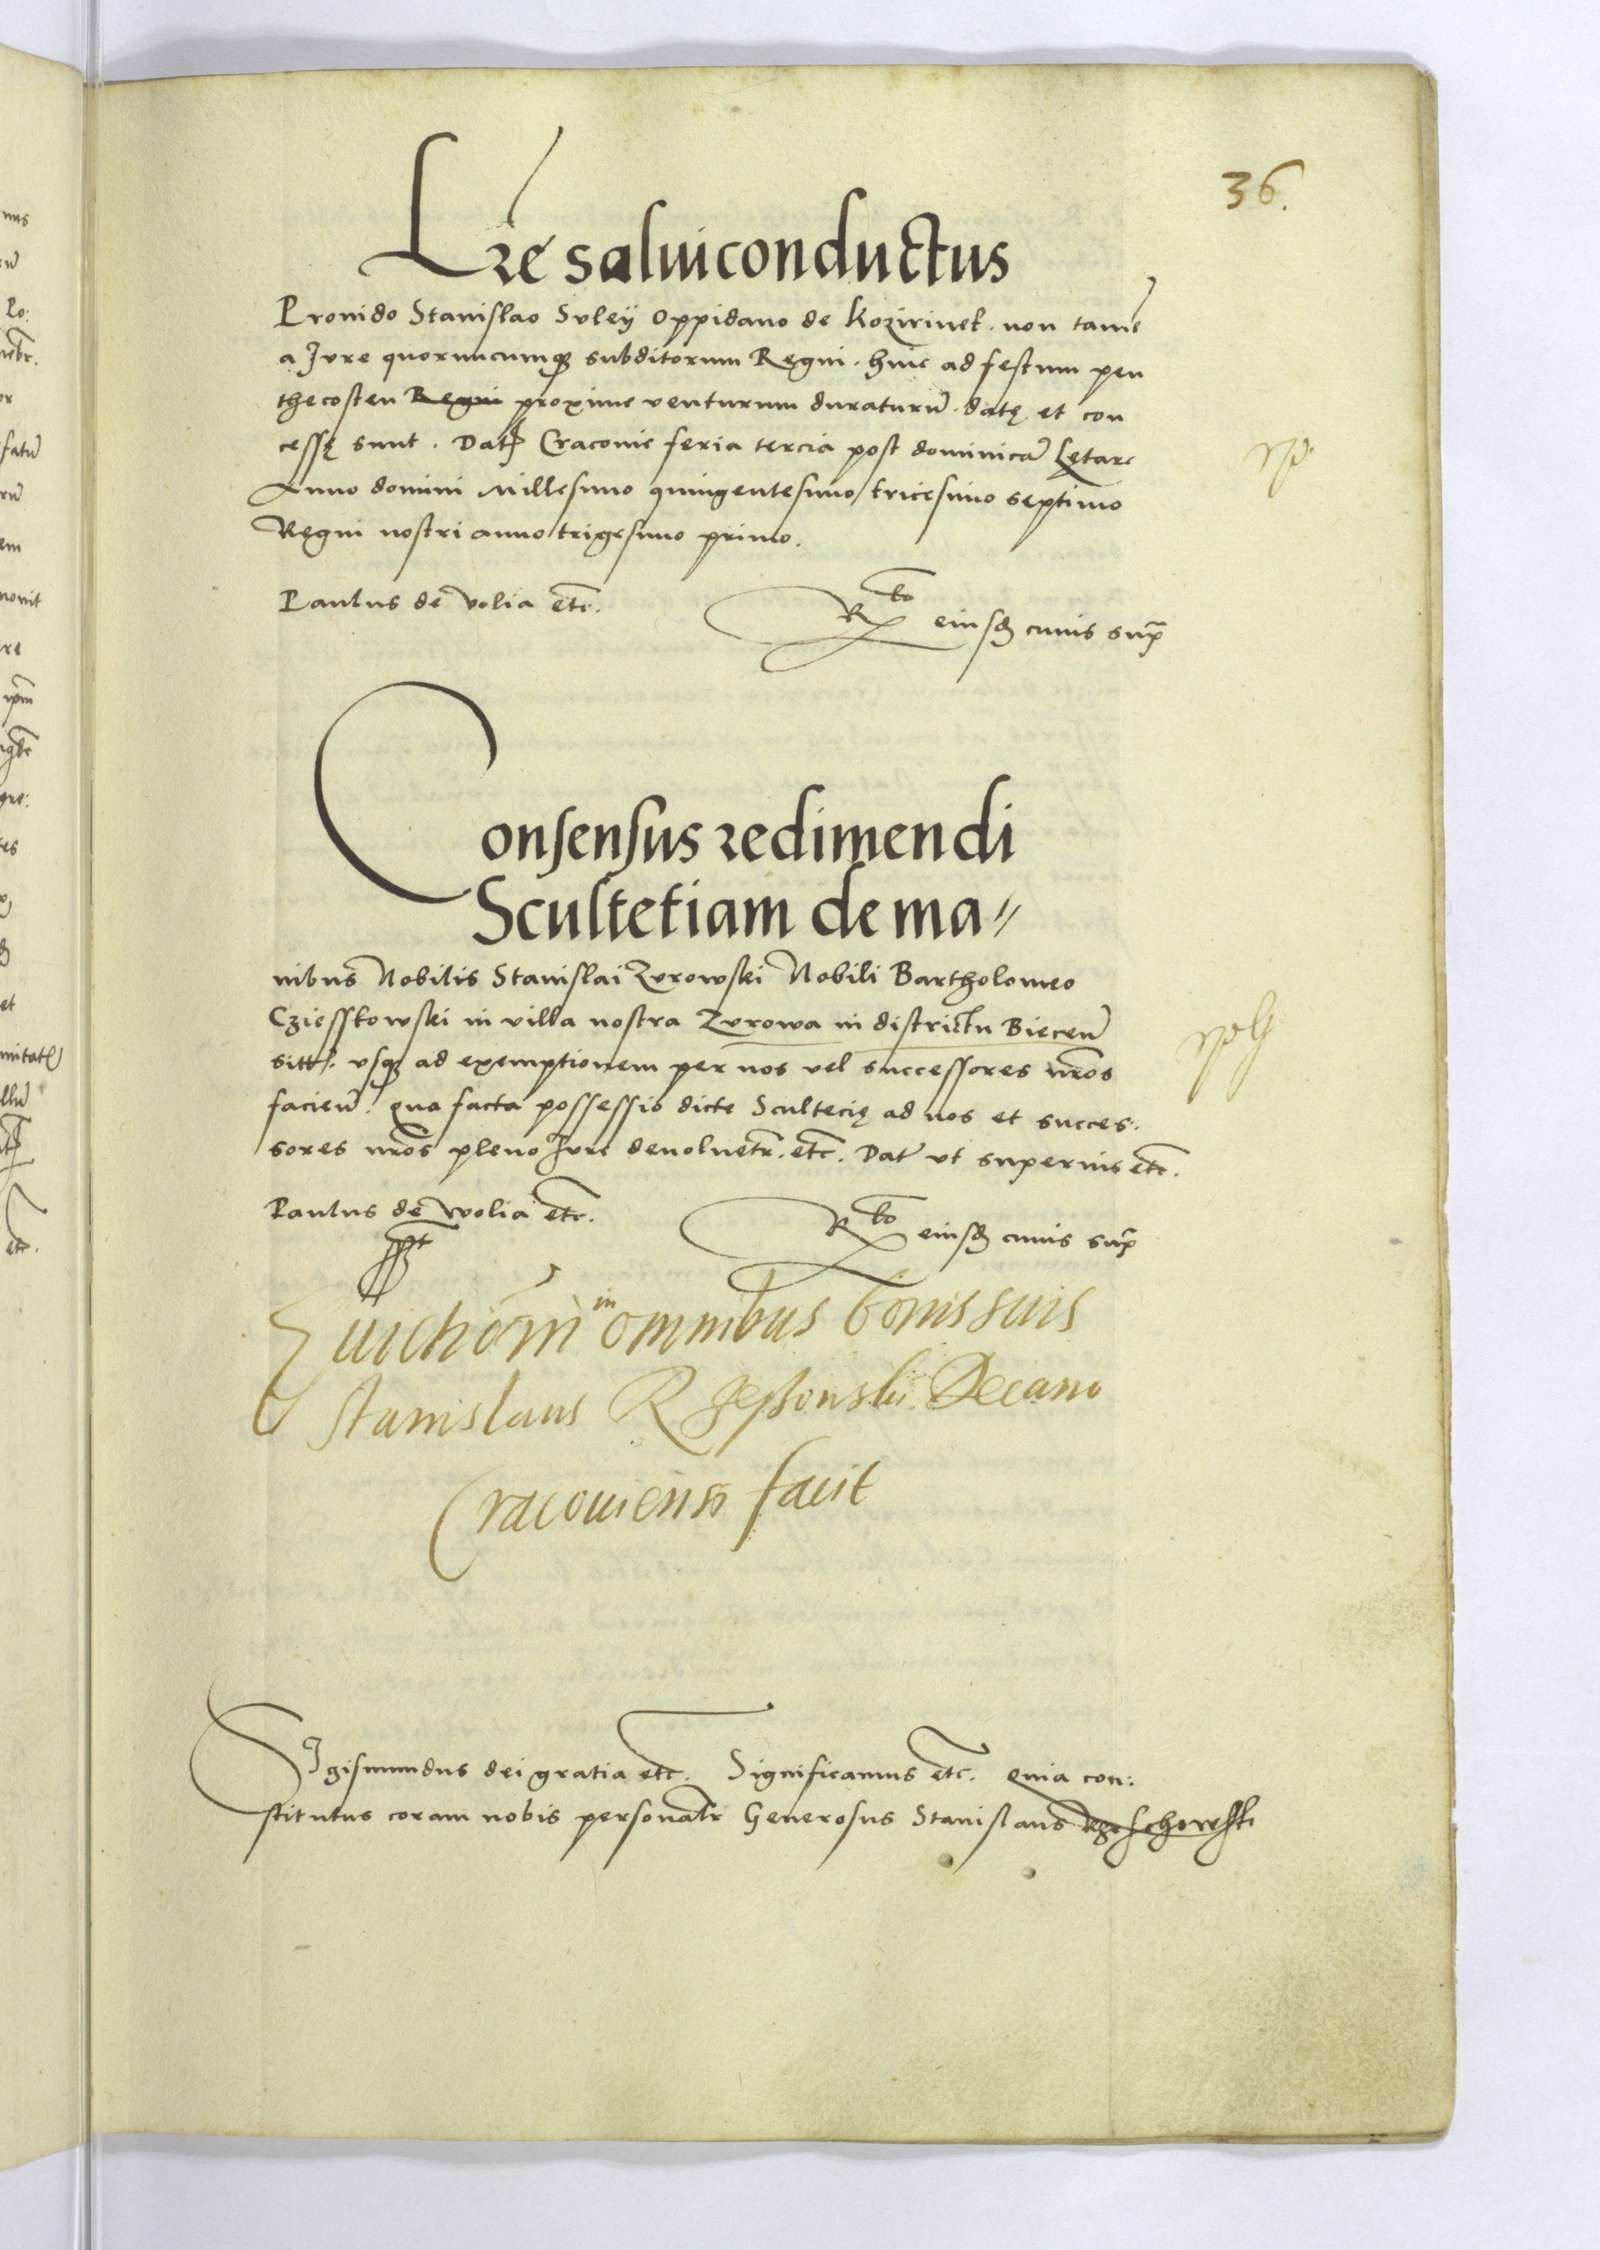 36.
Lre salviconductus
Provido Stanislao Suleÿ Oppidano de Kozirinek. non tamē
a Jure quorumcumq subditorum Regni. hinc ad festum pen
thecosten Regni proxime venturum duraturū. datę et con
cessę sunt. Dat Cracovie feria tercia post dominicā Lętare
Anno domini Millesimo quingentesimo tricesimo septimo
Regni nostri anno trigesimo primo.
Paulus de Volia etc.
Rto eiusd cuius supra
Consensus redimendi
Scultetiam de ma=
nibus Nobilis Stanislai Zurowski Nobili Bartholomeo
Cziesskowski in villa nostra Zurowa in districtu Biecen̄
sitt. usq ad exemptionem per nos vel successores nros
facien̄. qua facta possessio dicte Scultecię ad nos et succes.
sores nros pleno Jure devoluetr. etc. Dat ut superius etc.
Paulus de Wolia etc.
sspt
Rto eiusd cuius supra
Evictiōm in omnibus bonis suis
Stanislaus Rzessowski Decano
Cracoviensi facit
Sigismundus dei gratia etc. Significamus etc. quia con:
stitutus coram nobis personalr Generosus Stanislaus